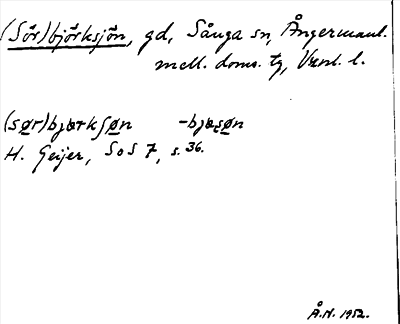 (Sör)björksjön, gd, Sånga sn, Ångermanl.
mell. doms. tg, Vnl. l.
(sør)bjærkʃøn -bjæʂøn
H. Geijer, SoS 7, s. 36.
Å.N. 1952.